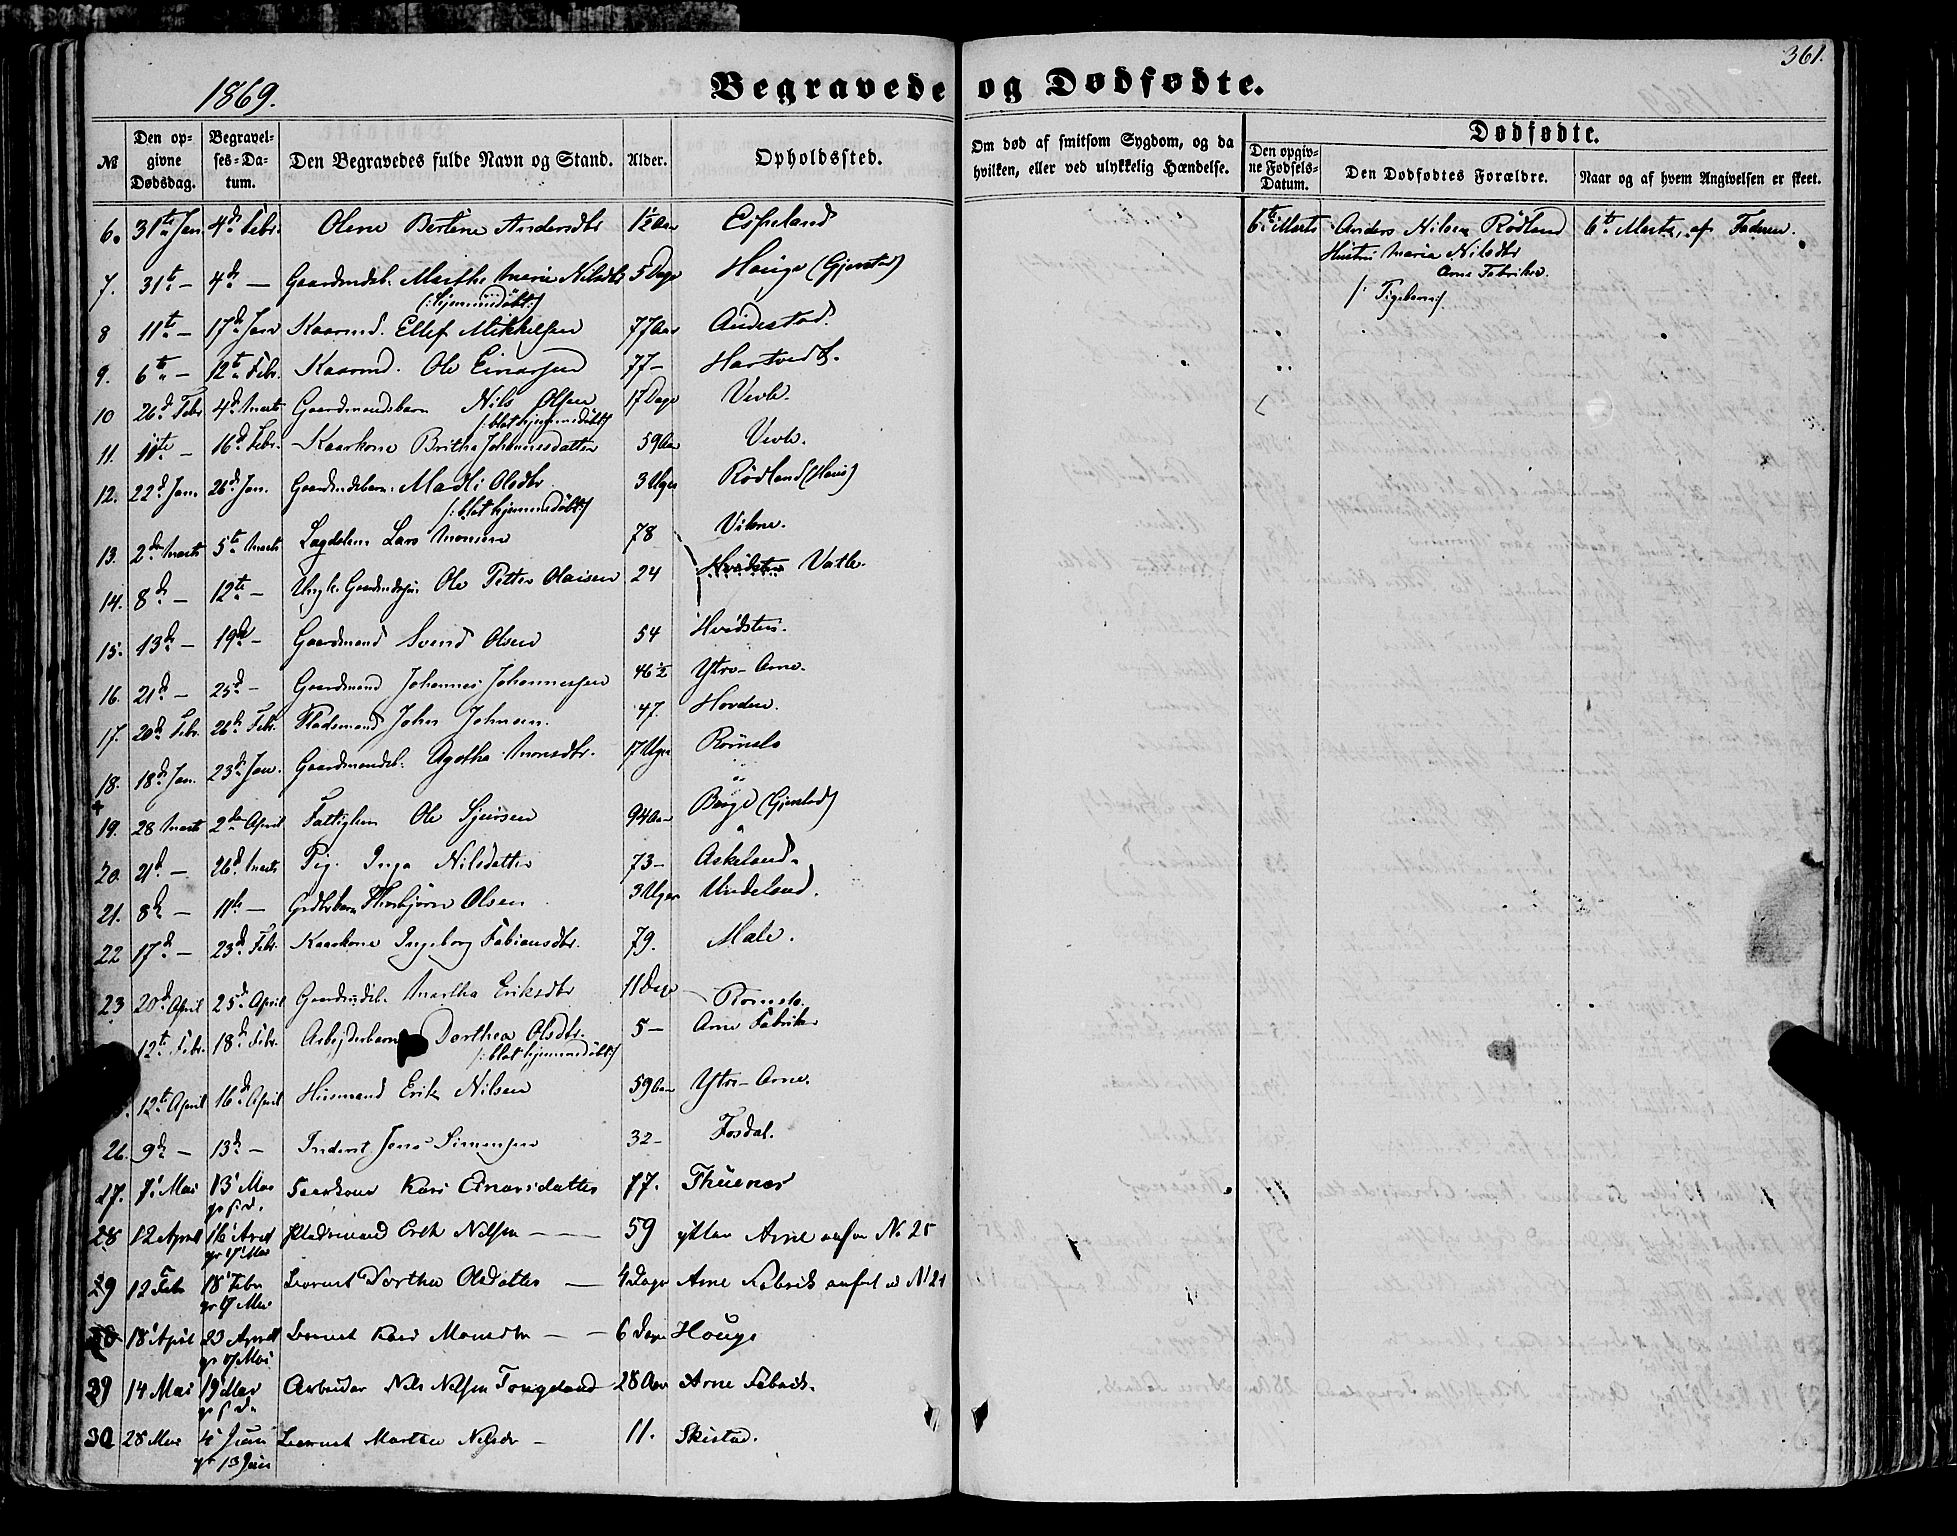 361.
1869.
Begravede og Dødfødte.
№ Den opgivne Dødsdag. Begravelses-Datum. Den Begravedes fulde Navn og Stand. Alder. Opholdssted. Om død af smitsom Sygdom, og da hvilken, eller ved ulykkelig Hændelse. Den opgivne Fødsels-Datum. Dødfødte. Den Dødfødtes Forældre. Naar og af hvem Angivelsen er skeet.
6. 31te Jan 4de Febr. Olene Bertine Andersdtr 1½ Aar Espeland 6te Marts Anders Nilsen Rødland 6te Marts, af Faderen.
Hustru Maria Nilsdtr
Arne Fabriker.
/: Pigebarn:/
7. 31te — 4de — Gaardmdsb. Marthe Marie Nilsdtr 5 Dage Hauge (Gjerstad)
/:hjemmedöbt:/
8 11te — 17de Jan Kaarmd. Ellef Mikkelsen 77 Aar Andestad.
9. 6te — 12te Febr. Kaarmd. Ole Einarsen 77 — Hartvedt.
10 26de Febr 4de Marts Gaardmandsbarn Nils Olsen 17 Dage Vevle.
/:blot hjemmedöbt:/
11. 11te — 16de Febr. Kaarkone Britha Johannesdatter 59 Aar Vevle.
12. 22de Jan. 26de Jan. Gaardmdsbarn Madli Olsdtr 3 Uger Rødland (Haus)
/:blot hjemmedöbt:/
13. 2den Marts 5te Marts Lægdslem Lars Monsen 78 Vikne.
14. 8de — 12te — Ungk. Gaardmdssøn Ole Petter Olaisen 24 Hvidsten Vatle.
15. 13de — 19de — Gaardmand Svend Olsen 54 Hvidsten.
16. 21de — 25de — Gaardmand Johannes Johannessen 46½ Ytre-Arne.
17. 20de Febr. 26de Febr. Pladsmand John Johnsen. 47. Hovden.
18. 18de Jan. 23de Jan. Gaardmandsb. Agatha Monsdtr. 17 Uger Romslo
19. 28 Marts 2den April Fattiglem Ole Sjursen 94 Aar Borge (Gjerstad)
20. 21de — 26de Marts Pig. Inga Nilsdatter 73 — Askeland.
21. 8de — 11te — Grdbrbarn Thorbjørn Olsen 3 Uger Undeland.
22 17de — 23de Febr. Kaarkone Ingeborg Fabiansdtr. 79. Male.
23 20de April 25de April Gaardmdsb. Martha Eriksdtr 11 Dage Romslo.
12te Febr. 18de Febr. Arbejderbarn Dorthea Olsdtr. 5 — Arne Fabrik
/:blot hjemmedöbt:/
12te April 16de April Huusmand Erik Nilsen 59 Aar Ytre-Arne.
26. 9de — 13de — Inderst Jens Simensen 32 — Fosdal.
27. 7' Mai 13' Mai Kaarkone Kari Einarsdatter 77. Thuenes
28 12 April 16' April Pladsmand Erik Nilsen — — 59 ytter Arne anført No 25
gr 17' Mai
29 12 Febr 18' Febr Barnet Dorthea Olsdatter — 4 Dage Arne Fabrik anført No 24
gr 17 Mai
18' April 23 April Barnet Kari Monsdtr — — 6 Dage Houge
gr 17. Mai
29 14 Mai 19' Mai Arbeider Nils Nilsen Tongeland 28 Aar Arne Fabrik.
30 28 Mai 4' Juni Barnet Marthe Nilsdr — 11. Skistad.
gr 13 Juni